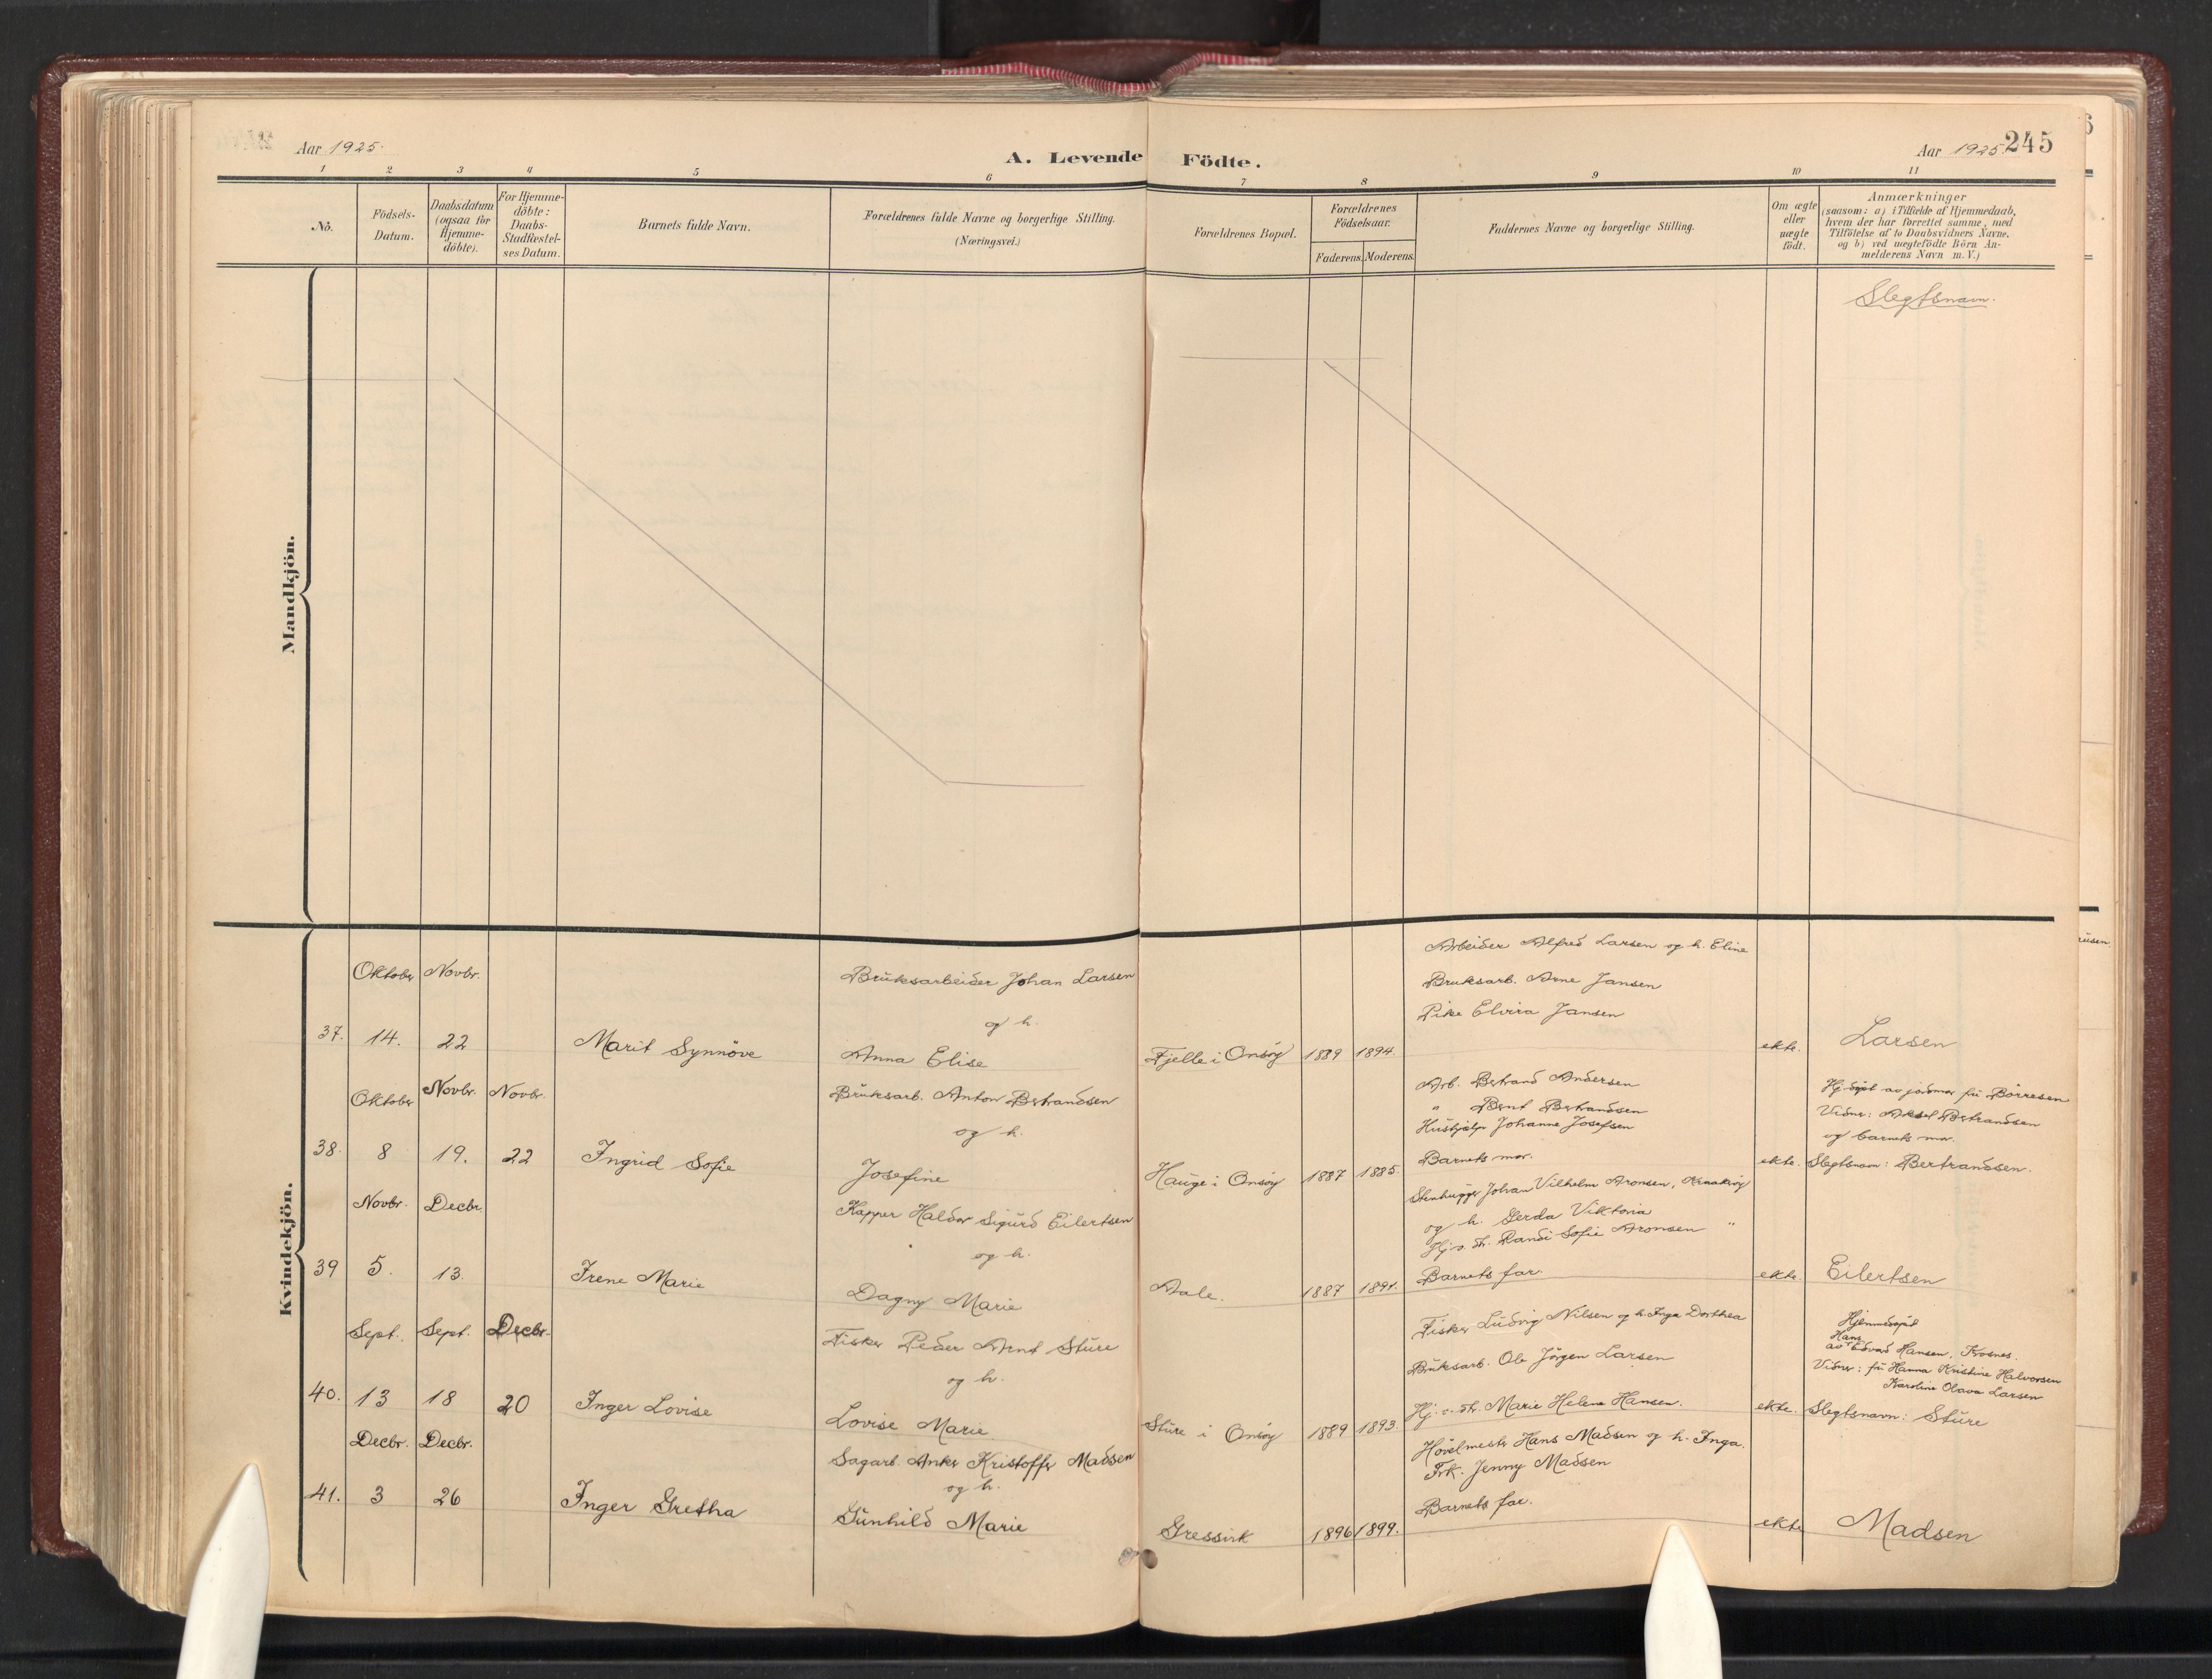 Aar 1925.
A. Levende Födte.
Aar 1925. 245
1 2 3 4 5 6 7 8 9 10 11
Nô.
Födsels-
Datum.
Daabsdatum
(ogsaa for
Hjemme-
döbte).
For Hjemme-
döbte:
Daabs-
Stadfæstel-
ses Datum.
Barnets fulde Navn.
Forældrenes fulde Navne og borgerlige Stilling.
(Næringsvei.)
Forældrenes Bopæl.
Forældrenes
Födselsaar.
Faderens. Moderens.
Faddernes Navne og borgerlige Stilling.
Om ægte
eller
uægte
födt.
Anmærkninger
(saasom: a) i Tilfælde af Hjemmedaab,
hvem der har forrettet samme, med
Tilföielse af to Daabsvidners Navne.
og b) ved uægtefödte Börn An-
melderens Navn m.V.)
Slegtsnavn.
Mandkjön.
Kvindekjön.
Oktober Novbr.
37. 14. 22
Marit Synnöve
Bruksarbeider Johan Larsen
og h.
Anna Elise
Fjelle i Onsöy 1889 1894.
Arbeider Alfred Larsen og h. Eline
Bruksarb. Arne Jansen
Pike Elvira Jansen
ekte.
Larsen
Oktober Novbr. Novbr.
38. 8 19. 22
Ingrid Sofie
Bruksarb. Anton Bertrandsen
og h.
Josefine
Hauge i Onsöy 1887 1885.
Arb. Bertrand Andersen
" Bernt Bertrandsen
Hushjælp Johanne Josefsen
Barnets mor.
ekte.
Hj. döpt av jordmor fru Börresen
Vidner: Aksel Bertrandsen
og barnets mor.
Slegtsnavn: Bertrandsen.
Novbr. Decbr.
39 5. 13.
Irene Marie
Kapper Haldor Sigurd Eilertsen
og h.
Dagny Marie
Aale. 1887 1891.
Stenhugger Johan Vilhelm Aronsen,
og h. Gerda Viktoria
Hj. v. th. Randi Sofie Aronsen "
Barnets far.
ekte.
Eilertsen
Sept. Sept. Decbr.
40. 13 18 20
Inger Lovise
Fisker Peder Arnt Sture
og h.
Lovise Marie
Sture i Onsöy 1889 1893.
Fisker Ludvig Nilsen og h. Inga Dorthea
Bruksarb. Ole Jörgen Larsen
Hj. v. th. Marie Helene Hansen.
ekte.
Hjemmedöpt
Hans
av Edvard Hansen,
Vidner: fru Hanna Kristine Halvorsen
Karoline Olava Larsen
Slegtsnavn: Sture
Decbr. Decbr.
41. 3 26
Inger Gretha
Sagarb. Anker Kristoffer Madsen
og h.
Gunhild Marie
Gressvik 1896 1899.
Hövelmester Hans Madsen og h. Inga.
Frk. Jenny Madsen
Barnets far.
ekte
Madsen